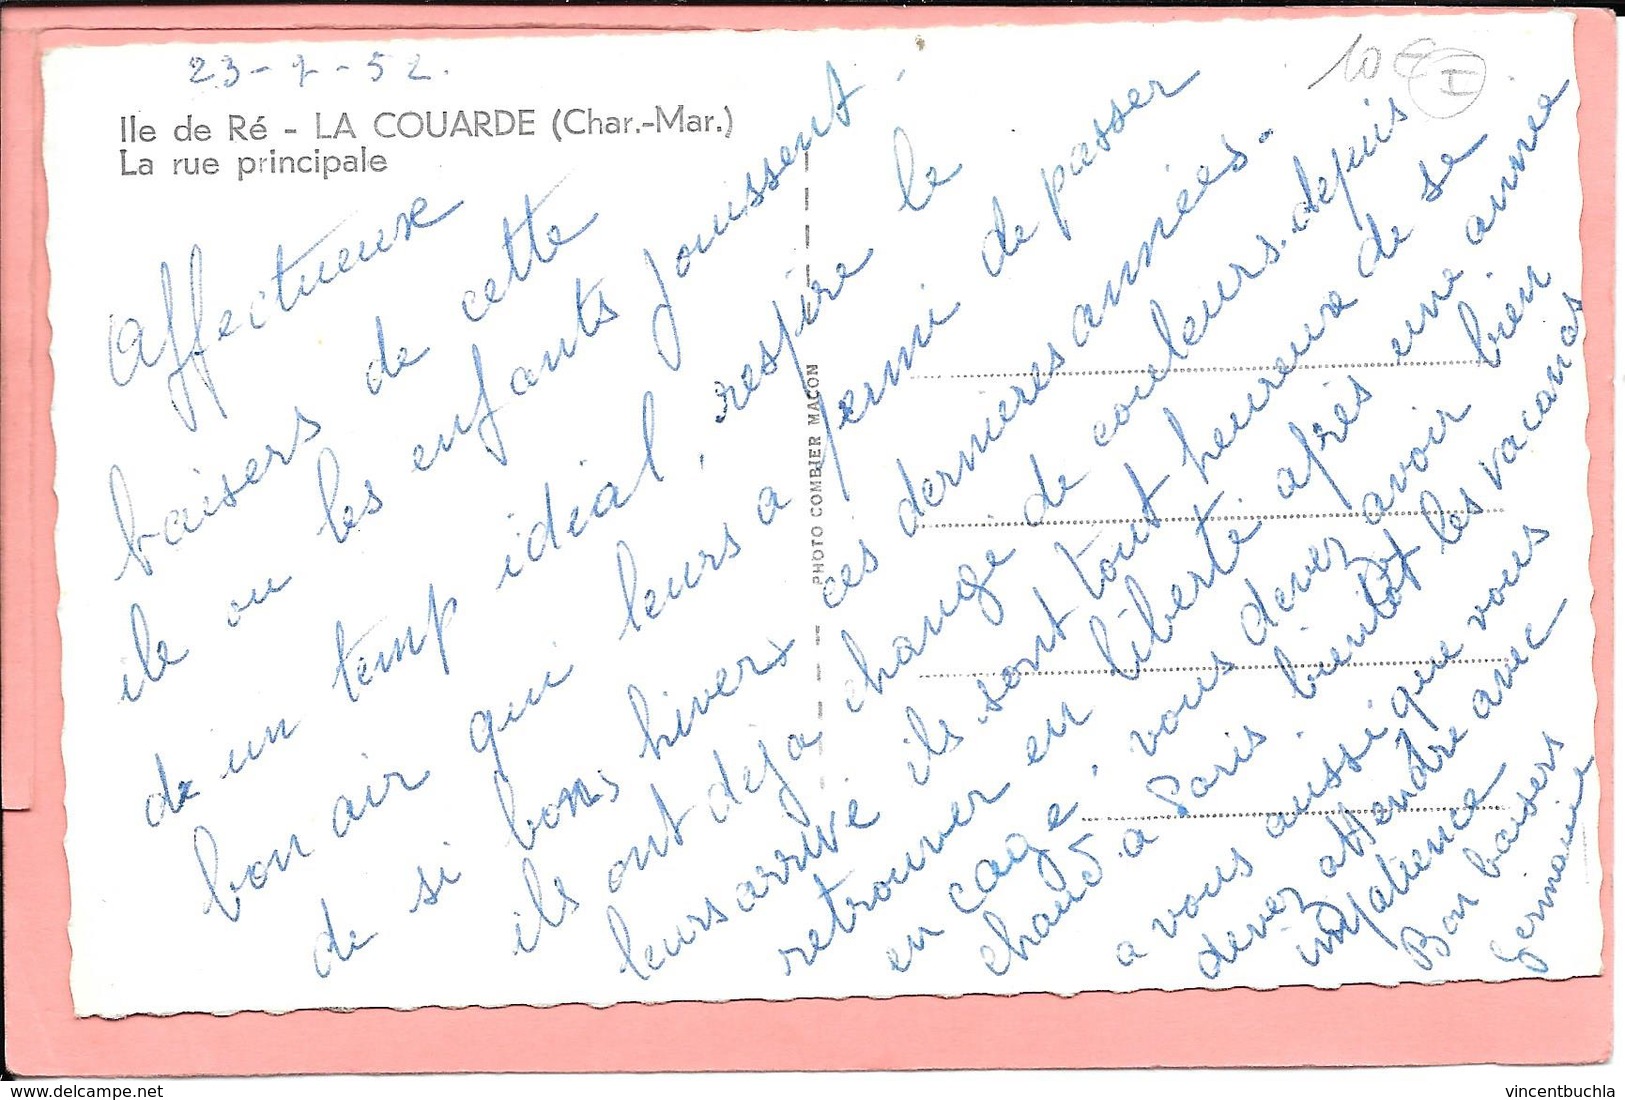 23-7-52.
Ile de Ré - LA COUARDE (Char.-Mar.)
La rue principale
10 €
I
Affectueux
baisers de cette
ile ou les enfants jouissent
de un temp idéal, respire le
bon air qui leurs a permi de passer
de si bons hivers ces dernieres années.
ils ont deja changé de couleurs depuis
leurs arrivé ils sont tout heureux de se
retrouver en liberté après une annee
en cage, vous devez avoir bien
chaud a Paris. bientôt les vacances
a vous aussi que vous
devez attendre avec
impatience
Bon baisers
Germaine
PHOTO COMBIER MACON
vincentbuchla